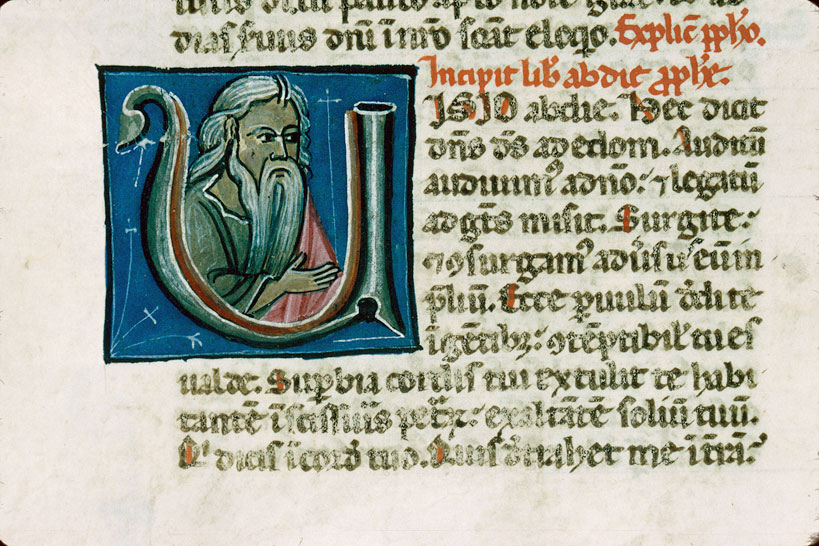 dias suus dn̄i ī nr̄o sc̄āt eloq̄o. Explic̄ ꝓlꝰo.
Incipit lib̄ abdie ꝓph̄e.
ISIO abdie. Hec dicit
dn̄s d̄s ad edom. Auditū
audiuimꝰ a dn̄o: ⁊ legatū
ad gētes misit. Surgite:
⁊ ꝯsurgamꝰ aduīsū eū in
p̄liū. Ecce ꝑuulū dedi te
ī gētibꝫ: ꝯtēptibil᷒ tu es
ualde. Suꝑbia cordis tui extulit te habi
tantē ī scissuris petraꝝ: exaltātē soliū tuū.
Qui dicis ī cord̄ tuo. Quis det̄het me ī t̄rā?